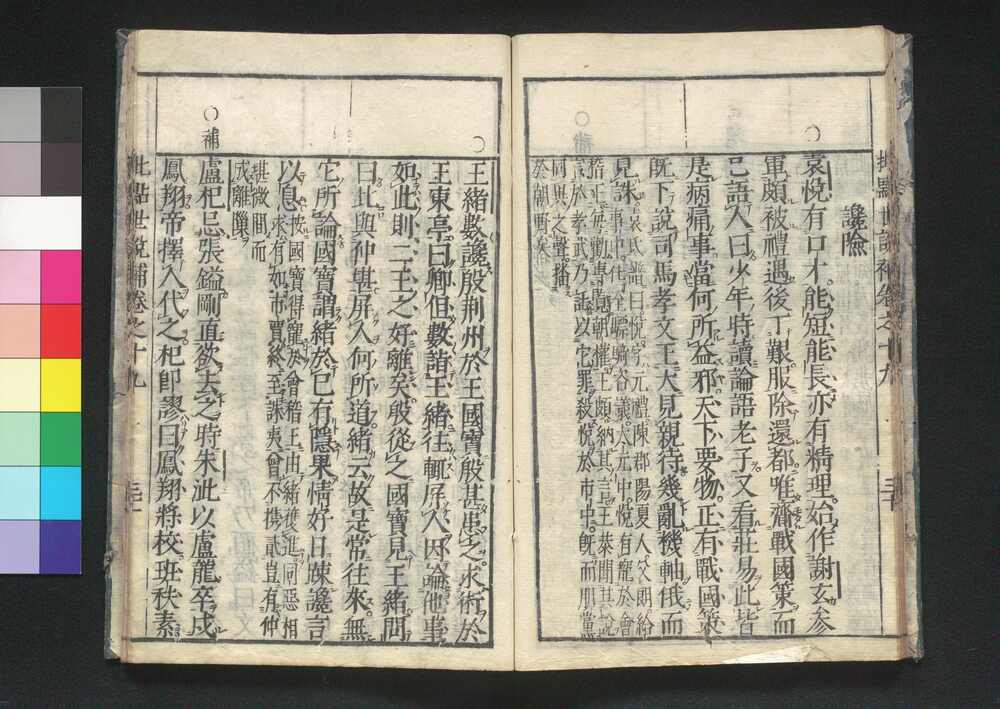 批點世說補卷之十九
讒險
○
袁悅有口才能短能長亦有精理始作謝玄參
軍頗被禮遇後丁艱服除還都唯齎戰國策而
已語人曰少年時讀論語老子又看莊易此皆
是病痛事當何所益邪天下要物正有戰國策
既下說司馬孝文王大見親待幾亂機軸俄而
見誅袁氏譜曰悅字元禮陳郡陽夏人父朗給
事中仕至驃騎咨議太元中悅有寵於會
稽王每勸專覽朝權王頗納其言王恭聞其說
言於孝武乃託以它罪殺悅於市中既而朋黨
同異之聲播
於朝野矣
○
王緒數讒殷荊州於王國寶殷甚患之求術於
王東亭曰卿但數詣王緒往輒屏人因論他事
如此則二王之好離矣殷從之國寶見王緒問
曰比與仲堪屏人何所道緒云故是常往來無
它所論國寶謂緒於已有隱果情好日疎讒言
以息按國寶得寵於會稽王由緒獲進同惡相
求有如市賈終至誅夷曾不携貳豈有仲
堪微間而
成離隟
○補
盧杞忌張鎰剛直欲去之時朱泚以盧龍卒戍
鳳翔帝擇人代之杞即謬曰鳳翔將校班秩素
批點世說補卷之十九